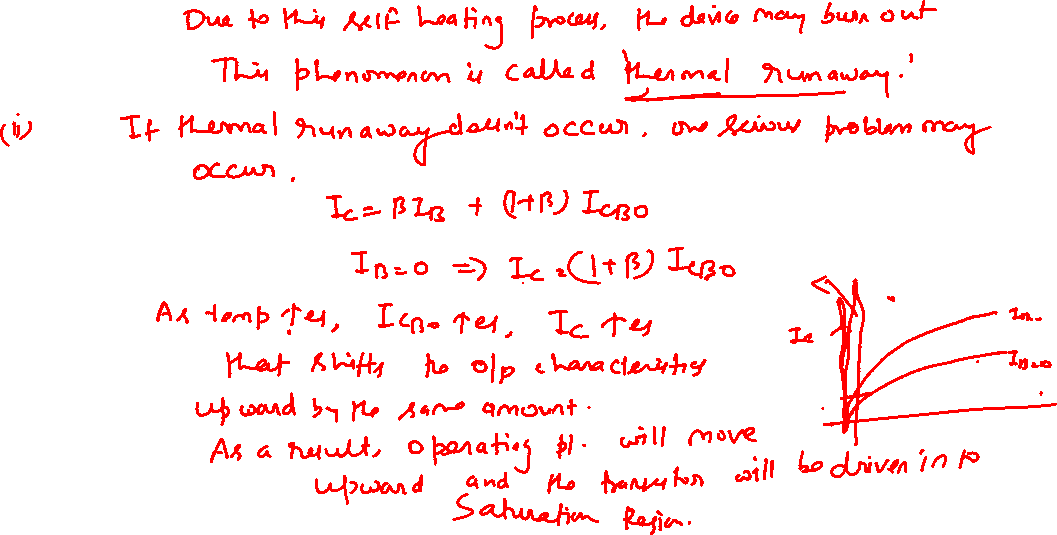 Due to this self heating process, the device may burn out
This phenomenon is called thermal runaway.'
(ii) If thermal runaway doesn't occur, one serious problem may
occur.
Ic = βIB + (1+β) ICBO
IB=0 => Ic = (1+β) ICBO
As temp ↑es, ICBO ↑es, Ic ↑es
that shifts the o/p characteristics
upward by the same amount.
As a result, operating pt. will move
upward and the transistor will be driven in to
Saturation Region.
Ic
IB=0